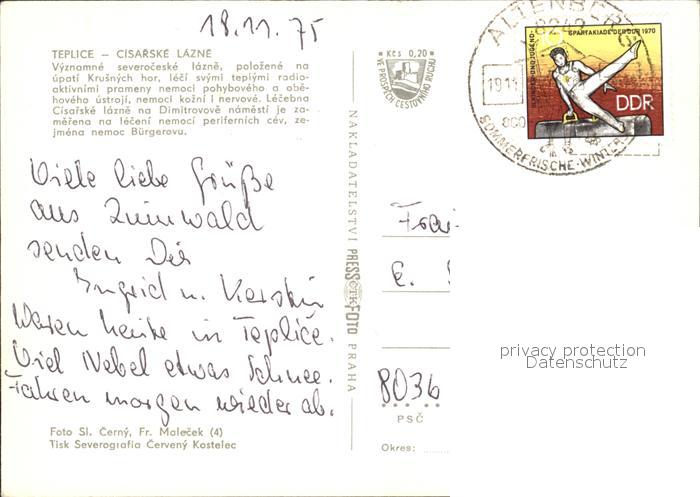 18.11.75
TEPLICE – CÍSAŘSKÉ LÁZNĚ
Významné severočeské lázně, položené na
úpatí Krušných hor, léčí svými teplými radio-
aktivními prameny nemoci pohybového a obě-
hového ústrojí, nemoci kožní i nervové. Léčebna
Císařské lázně na Dimitrovově náměstí je za-
měřena na léčení nemocí periferních cév, ze-
jména nemoc Bürgerovu.
Viele liebe Grüße
aus Zinnwald
senden Dir
Ingrid u. Kerstin
Waren heute in Teplice.
Viel Nebel etwas Schnee.
Fahren morgen wieder ab.
Foto Sl. Černý, Fr. Maleček (4)
Tisk Severografia Červený Kostelec
NAKLADATELSTVÍ PRESSFOTO PRAHA
ČTK
Kčs 0,20
VE PROSPĚCH CESTOVNÍHO RUCHU
ALTENBERG
8242
19.11
SOMMERFRISCHE - WINTERS
KINDER- UND JUGEND-
SPARTAKIADE DER DDR 1970
DDR
E.
8036
PSČ
Okres:
privacy protection
Datenschutz